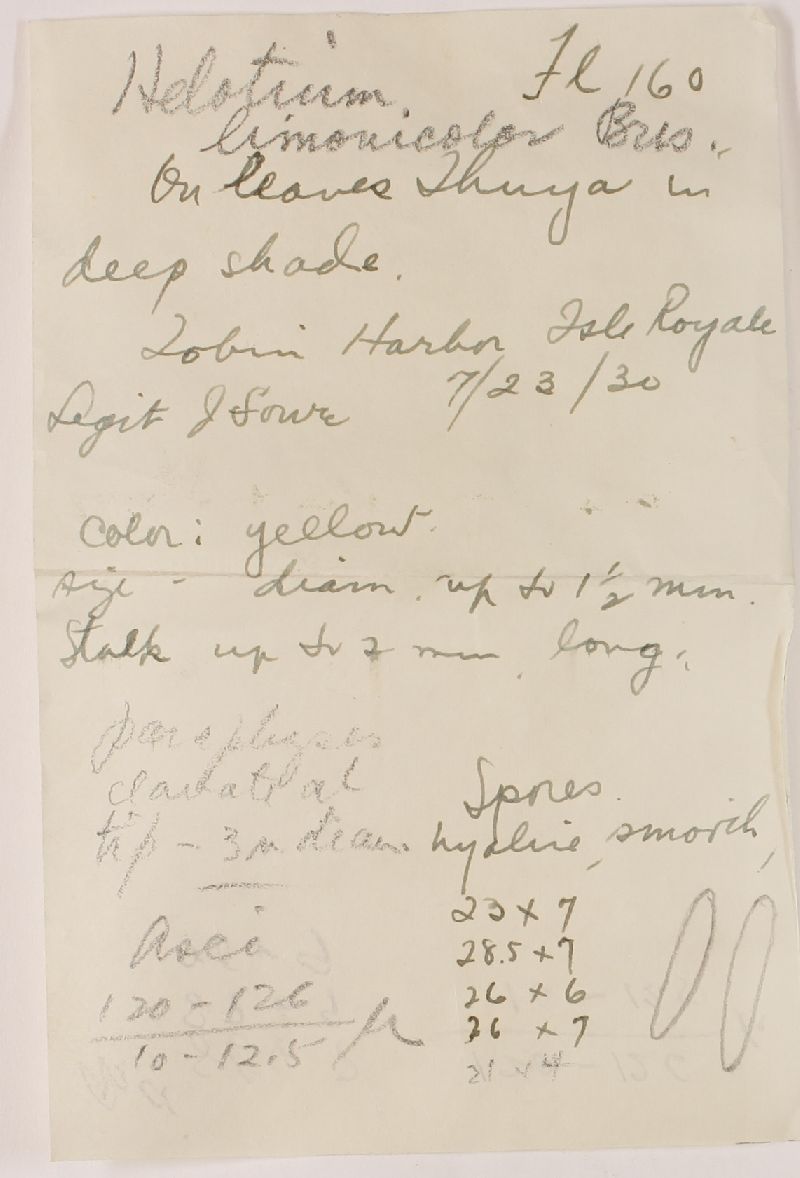 Helotium Fl 160
limonicolor Bres.
On leaves Thuya in
deep shade.
Tobin Harbor Isle Royale
Legit J Lowe 7/23/30
color: yellow.
size - diam. up to 1 1/2 mm.
Stalk up to 2 mm long.
paraphyses
clavate at
tip - 3µ diam.
Spores
hyaline, smooth,
23 x 7
28.5 x 7
26 x 6
26 x 7
21 x 4
Asci
120 - 126
10 - 12.5 µ